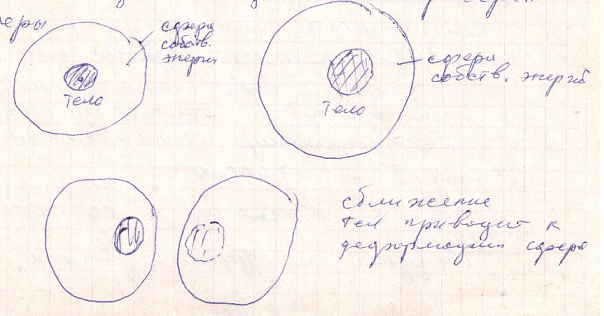 еры
сфера
собств.
энергии
Тело
сфера
собств. энергий
Тело
сближение
тел приводит к
деформации сферы